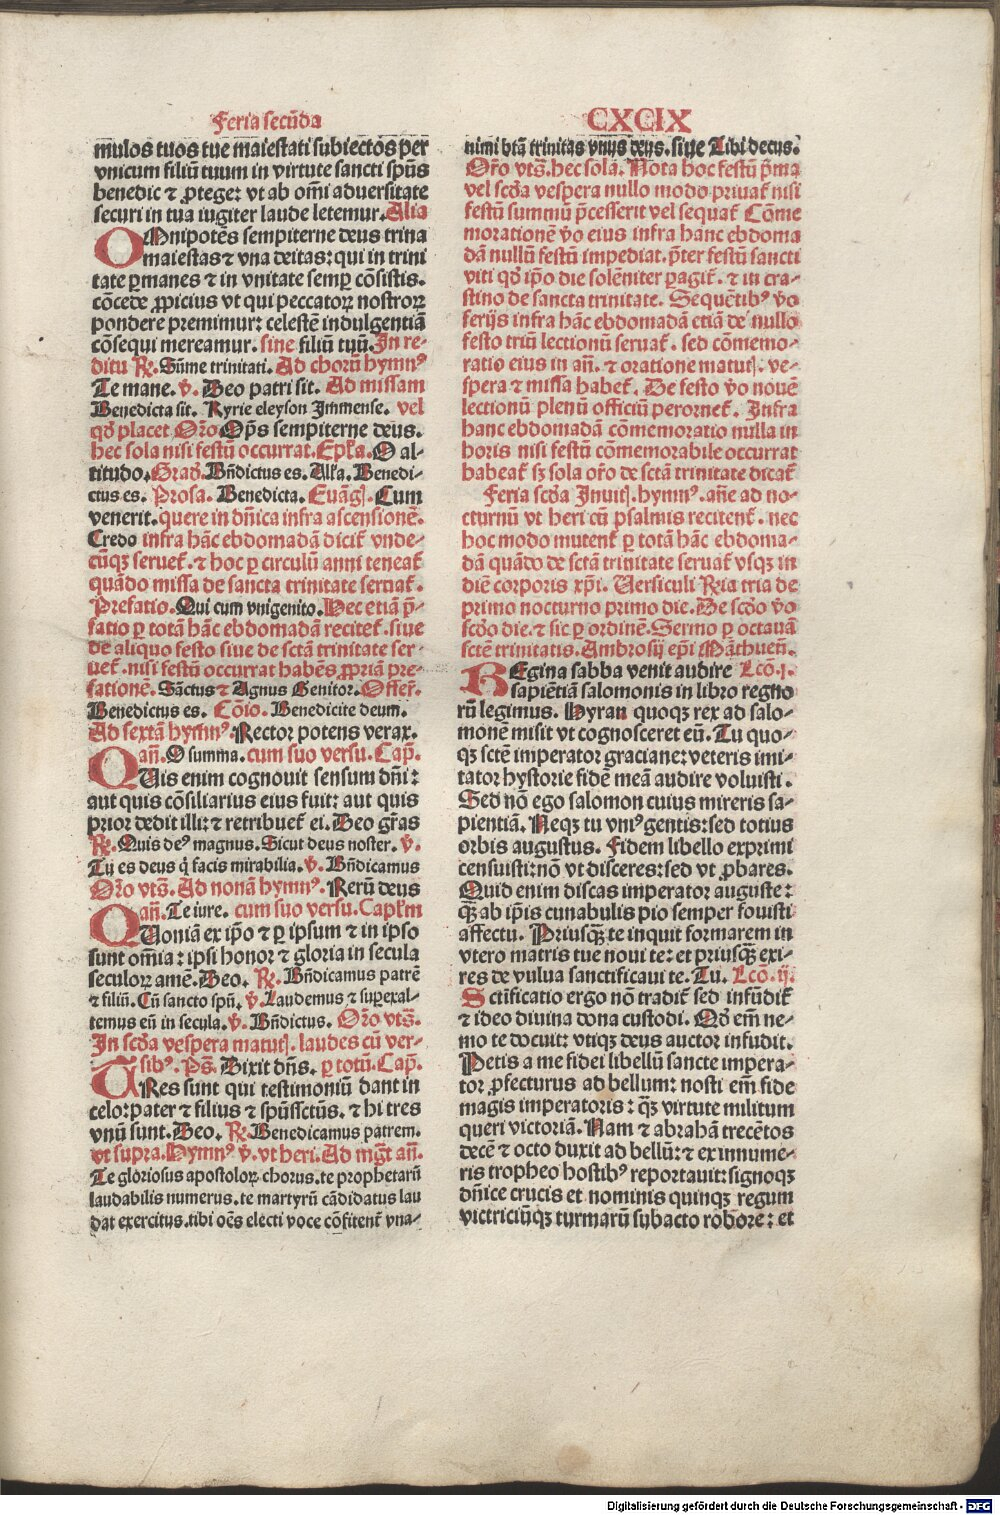 Feria secūda
mulos tuos tue maiestati subiectos per
vnicum filiū tuum in virtute sancti spūs
benedic ⁊ ꝓtege: vt ab om̄i aduersitate
securi in tua iugiter laude letemur. Alia
OMnipotēs sempiterne deus trina
maiestas ⁊ vna deitas: qui in trini
tate ꝑmanes ⁊ in vnitate semꝑ cōsistis.
cōcede ꝓpicius vt qui peccatoꝝ nostroꝝ
pondere premimur: celestē indulgentiā
cōsequi mereamur. sine filiū tuū. In re⸗
ditu ℟. Sūme trinitati. Ad chorū hymnꝰ
Te mane. ℣. Beo patri sit. Ad missam
Benedicta sit. Kyrie eleyson Immense. vel
qd̄ placet Or̄o Op̄s sempiterne deus.
hec sola nisi festū occurrat. Ep̄la. O al⸗
titudo. Grad̄. Bn̄dictus es. Alľa. Benedi⸗
ctus es. Prosa. Benedicta. Euāgꝭ. Cum
venerit. quere in dn̄ica infra ascensionē.
Credo infra hāc ebdomadā dicit̄ vnde⸗
cūqꝫ seruet̄. ⁊ hoc ꝑ circulū anni teneat̄
quādo missa de sancta trinitate seruat̄.
Prefatio. Qui cum vnigenito. Hec etiā p̄⸗
fatio ꝑ totā hāc ebdomadā recitet̄. siue
de aliquo festo siue de sctā trinitate ser⸗
uet̄. nisi festū occurrat habēs ꝓpriā pre⸗
fationē. Sāctus ⁊ Agnus Genitor. Offer̄.
Benedictus es. Cōio. Benedicite deum.
Ad sextā hymnꝰ. Rector potens verax.
an̄. O summa. cum suo versu. Cap̄.
QUis enim cognouit sensum dn̄i:
aut quis cōsiliarius eius fuit: aut quis
prior dedit illi: ⁊ retribuet̄ ei. Deo gr̄as
℟. Quis deꝰ magnus. Sicut deus noster. ℣.
Tu es deus q̄ facis mirabilia. ℣. Bn̄dicamus
Or̄o vts̄. Ad nonā hymnꝰ. Rerū deus
an̄. Te iure. cum suo versu. Capľm
QUoniā ex ip̄o ⁊ ꝑ ipsum ⁊ in ipso
sunt om̄ia: ipsi honor ⁊ gloria in secula
seculoꝝ amē. Deo. ℟. Bn̄dicamus patrē
⁊ filiū. Cū sancto spū. ℣. Laudemus ⁊ suꝑexal⸗
temus eū in secula. ℣. Bn̄dictus. Or̄o vts̄.
In scd̄a vespera matutꝭ. laudes cū ver⸗
sibꝰ. Ps̄. Dixit dn̄s. ꝑ totū. Cap̄.
TRes sunt qui testimoniū dant in
celo: pater ⁊ filius ⁊ spūssctūs. ⁊ hi tres
vnū sunt. Deo. ℟. Benedicamus patrem.
vt supra. Hymnꝰ ℣. vt heri. Ad mḡt an̄.
Te gloriosus apostoloꝝ chorus. te prophetarū
laudabilis numerus. te martyrū cādidatus lau
dat exercitus. tibi oēs electi voce cōfitent̄ vna⸗
CXCIX
nimi btā trinitas vnus deus. siue Tibi decus.
Or̄o vts̄. hec sola. Nota hoc festū p̄ma
vel scd̄a vespera nullo modo priuat̄ nisi
festū summū p̄cesserit vel sequat̄ Cōme
morationē v̄o eius infra hanc ebdoma
dā nullū festū impediat. p̄ter festū sancti
viti qd̄ ip̄o die solēniter ꝑagit̄. ⁊ in cra⸗
stino de sancta trinitate. Sequētibꝰ v̄o
ferijs infra hāc ebdomadā etiā de nullo
festo triū lectionū seruat̄. sed cōmemo⸗
ratio eius in an̄. ⁊ oratione matutꝭ. ve⸗
spera ⁊ missa habet̄. De festo v̄o nouē
lectionū plenū officiū perornet̄. Infra
hanc ebdomadā cōmemoratio nulla in
horis nisi festū cōmemorabile occurrat
habeat̄ sꝫ sola or̄o de sctā trinitate dicat̄
Feria scd̄a Inuitꝭ. hymnꝰ. an̄e ad no⸗
cturnū vt heri cū psalmis recitent̄. nec
hoc modo mutent̄ ꝑ totā hāc ebdoma⸗
dā quādo de sctā trinitate seruat̄ vsqꝫ in
diē corporis xp̄i. Versiculi ℟ia tria de
primo nocturno primo die. De scd̄o v̄o
scd̄o die. ⁊ sic ꝑ ordinē. Sermo ꝑ octauā
sctē trinitatis. Ambrosij ep̄i
REgina sabba venit audire Lcō. j.
sapiētiā salomonis in libro regno
rū legimus. Hyran quoqꝫ rex ad salo⸗
monē misit vt cognosceret eū. Tu quo⸗
qꝫ sctē imperator graciane: veteris imi⸗
tator hystorie fidē meā audire voluisti.
Sed nō ego salomon cuius mireris sa⸗
pientiā. Neqꝫ tu vniꝰ gentis: sed totius
orbis augustus. Fidem libello exprimi
censuisti: nō vt disceres: sed vt ꝓbares.
Quid enim discas imperator auguste:
qꝫ̄ ab ip̄is cunabulis pio semper fouisti
affectu. Priusqꝫ̄ te inquit formarem in
vtero matris tue noui te: et priusqꝫ̄ exi⸗
res de vulua sanctificaui te. Tu. Lcō. ij.
Sctificatio ergo nō tradit̄ sed infūdit̄
⁊ ideo diuina dona custodi. Qd̄ em̄ ne⸗
mo te docuit: vtiqꝫ deus auctor infudit.
Petis a me fidei libellū sancte impera⸗
tor ꝓfecturus ad bellum: nosti em̄ fide
magis imperatoris: qꝫ̄ virtute militum
queri victoriā. Nam ⁊ abrahā trecētos
decē ⁊ octo duxit ad bellū: ⁊ ex innume⸗
ris tropheo hostibꝰ reportauit: signoqꝫ
dn̄ice crucis et nominis quinqꝫ regum
victriciūqꝫ turmarū subacto robore: et
Digitalisierung gefördert durch die Deutsche Forschungsgemeinschaft - DFG